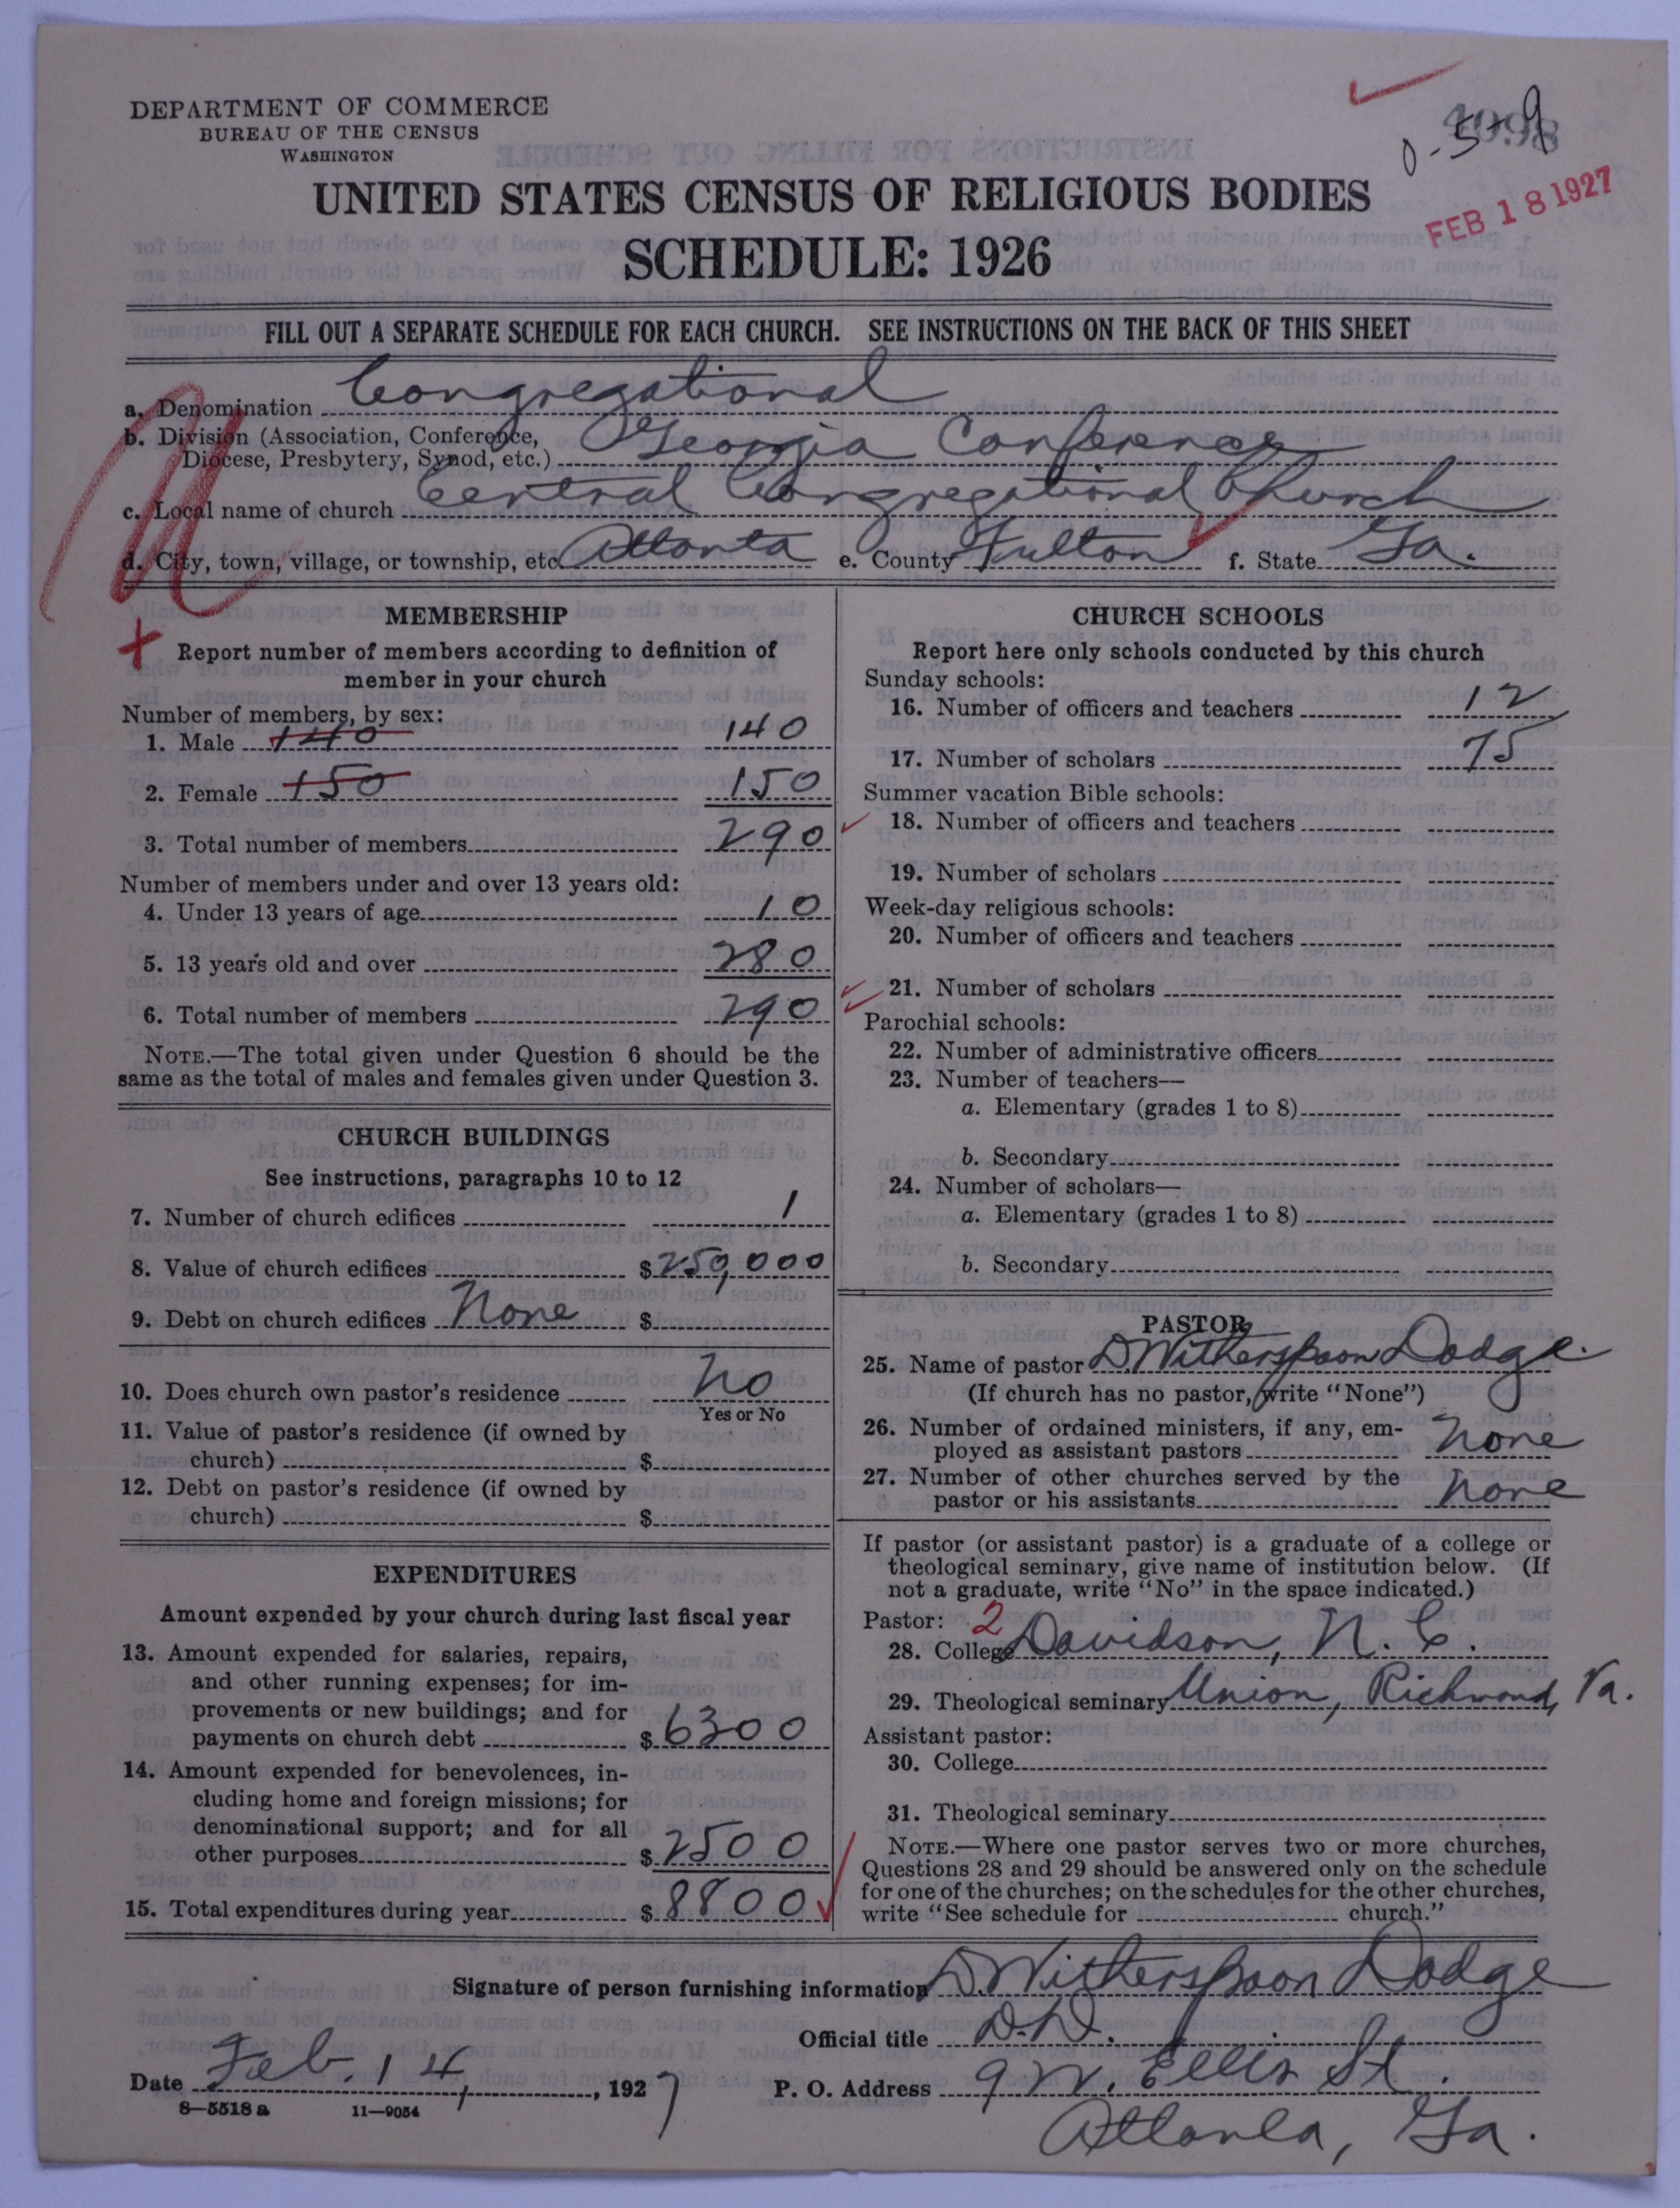 DEPARTMENT OF COMMERCE
BUREAU OF THE CENSUS
WASHINGTON
0-5-9
4098
FEB 18 1927
UNITED STATES CENSUS OF RELIGIOUS BODIES
SCHEDULE: 1926
FILL OUT A SEPARATE SCHEDULE FOR EACH CHURCH. SEE INSTRUCTIONS ON THE BACK OF THIS SHEET
a. Denomination Congregational
b. Division (Association, Conference,
Diocese, Presbytery, Synod, etc.) Georgia Conference
c. Local name of church Central Congregational Church
d. City, town, village, or township, etc. Atlanta e. County Fulton f. State Ga.
MEMBERSHIP
Report number of members according to definition of
member in your church
Number of members, by sex:
1. Male 140 140
2. Female 150 150
3. Total number of members 290
Number of members under and over 13 years old:
4. Under 13 years of age 10
5. 13 years old and over 280
6. Total number of members 290
NOTE.—The total given under Question 6 should be the
same as the total of males and females given under Question 3.
CHURCH BUILDINGS
See instructions, paragraphs 10 to 12
7. Number of church edifices 1
8. Value of church edifices $250,000
9. Debt on church edifices None $
10. Does church own pastor's residence No
Yes or No
11. Value of pastor's residence (if owned by
church) $
12. Debt on pastor's residence (if owned by
church) $
EXPENDITURES
Amount expended by your church during last fiscal year
13. Amount expended for salaries, repairs,
and other running expenses; for im-
provements or new buildings; and for
payments on church debt $6300
14. Amount expended for benevolences, in-
cluding home and foreign missions; for
denominational support; and for all
other purposes $2500
15. Total expenditures during year $8800
CHURCH SCHOOLS
Report here only schools conducted by this church
Sunday schools:
16. Number of officers and teachers 12
17. Number of scholars 75
Summer vacation Bible schools:
18. Number of officers and teachers
19. Number of scholars
Week-day religious schools:
20. Number of officers and teachers
21. Number of scholars
Parochial schools:
22. Number of administrative officers
23. Number of teachers—
a. Elementary (grades 1 to 8)
b. Secondary
24. Number of scholars—
a. Elementary (grades 1 to 8)
b. Secondary
PASTOR
25. Name of pastor D. Witherspoon Dodge.
(If church has no pastor, write "None")
26. Number of ordained ministers, if any, em-
ployed as assistant pastors None
27. Number of other churches served by the
pastor or his assistants None
If pastor (or assistant pastor) is a graduate of a college or
theological seminary, give name of institution below. (If
not a graduate, write "No" in the space indicated.)
Pastor: 2
28. College Davidson, N. C.
29. Theological seminary Union, Richmond, Va.
Assistant pastor:
30. College
31. Theological seminary
NOTE.—Where one pastor serves two or more churches,
Questions 28 and 29 should be answered only on the schedule
for one of the churches; on the schedules for the other churches,
write "See schedule for church."
Signature of person furnishing information D. Witherspoon Dodge
Official title D.D.
Date Feb. 14, 1927 P. O. Address 9 W. Ellis St.
8-5518a 11-9054
Atlanta, Ga.